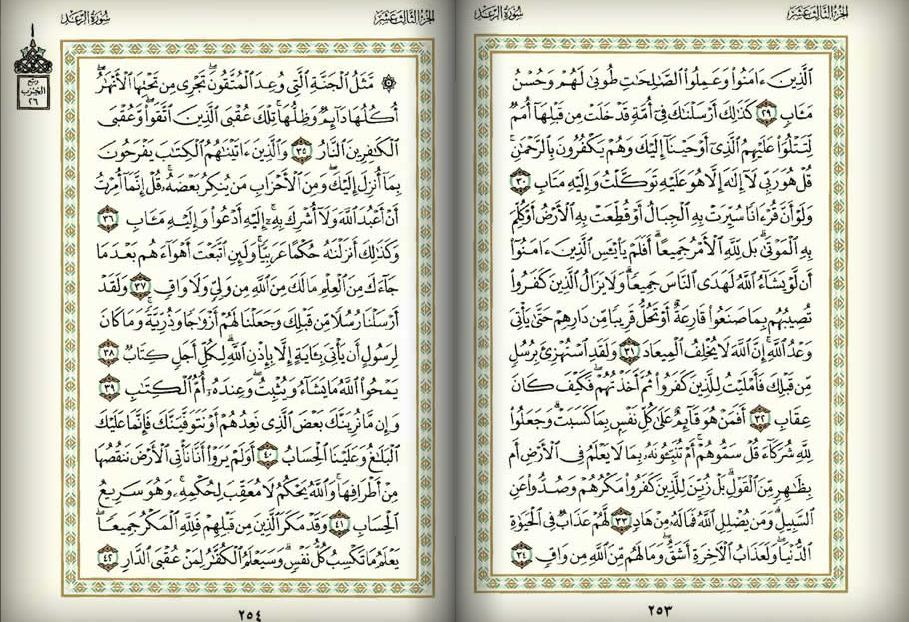 الجزء الثالث عشر
سورة الرعد
ٱلَّذِينَ ءَامَنُوا۟ وَعَمِلُوا۟ ٱلصَّٰلِحَٰتِ طُوبَىٰ لَهُمْ وَحُسْنُ
مَـَٔابٍ ٢٩ كَذَٰلِكَ أَرْسَلْنَٰكَ فِىٓ أُمَّةٍ قَدْ خَلَتْ مِن قَبْلِهَآ أُمَمٌ
لِّتَتْلُوَا۟ عَلَيْهِمُ ٱلَّذِىٓ أَوْحَيْنَآ إِلَيْكَ وَهُمْ يَكْفُرُونَ بِٱلرَّحْمَٰنِ
قُلْ هُوَ رَبِّى لَآ إِلَٰهَ إِلَّا هُوَ عَلَيْهِ تَوَكَّلْتُ وَإِلَيْهِ مَتَابِ ٣٠
وَلَوْ أَنَّ قُرْءَانًا سُيِّرَتْ بِهِ ٱلْجِبَالُ أَوْ قُطِّعَتْ بِهِ ٱلْأَرْضُ أَوْ كُلِّمَ
بِهِ ٱلْمَوْتَىٰ ۗ بَل لِّلَّهِ ٱلْأَمْرُ جَمِيعًا ۗ أَفَلَمْ يَا۟يْـَٔسِ ٱلَّذِينَ ءَامَنُوٓا۟
أَن لَّوْ يَشَآءُ ٱللَّهُ لَهَدَى ٱلنَّاسَ جَمِيعًا ۗ وَلَا يَزَالُ ٱلَّذِينَ كَفَرُوا۟
تُصِيبُهُم بِمَا صَنَعُوا۟ قَارِعَةٌ أَوْ تَحُلُّ قَرِيبًا مِّن دَارِهِمْ حَتَّىٰ يَأْتِىَ
وَعْدُ ٱللَّهِ ۚ إِنَّ ٱللَّهَ لَا يُخْلِفُ ٱلْمِيعَادَ ٣١ وَلَقَدِ ٱسْتُهْزِئَ بِرُسُلٍ
مِّن قَبْلِكَ فَأَمْلَيْتُ لِلَّذِينَ كَفَرُوا۟ ثُمَّ أَخَذْتُهُمْ ۖ فَكَيْفَ كَانَ
عِقَابِ ٣٢ أَفَمَنْ هُوَ قَآئِمٌ عَلَىٰ كُلِّ نَفْسٍۭ بِمَا كَسَبَتْ ۗ وَجَعَلُوا۟
لِلَّهِ شُرَكَآءَ قُلْ سَمُّوهُمْ ۚ أَمْ تُنَبِّـُٔونَهُۥ بِمَا لَا يَعْلَمُ فِى ٱلْأَرْضِ أَم
بِظَٰهِرٍ مِّنَ ٱلْقَوْلِ ۗ بَلْ زُيِّنَ لِلَّذِينَ كَفَرُوا۟ مَكْرُهُمْ وَصُدُّوا۟ عَنِ
ٱلسَّبِيلِ ۗ وَمَن يُضْلِلِ ٱللَّهُ فَمَا لَهُۥ مِنْ هَادٍ ٣٣ لَّهُمْ عَذَابٌ فِى ٱلْحَيَوٰةِ
ٱلدُّنْيَا ۖ وَلَعَذَابُ ٱلْـَٔاخِرَةِ أَشَقُّ ۖ وَمَا لَهُم مِّنَ ٱللَّهِ مِن وَاقٍ ٣٤
٢٥٣
الجزء الثالث عشر
سورة الرعد
ربع
الحزب
٢٦
۞ مَّثَلُ ٱلْجَنَّةِ ٱلَّتِى وُعِدَ ٱلْمُتَّقُونَ ۖ تَجْرِى مِن تَحْتِهَا ٱلْأَنْهَٰرُ ۖ
أُكُلُهَا دَآئِمٌ وَظِلُّهَا ۚ تِلْكَ عُقْبَى ٱلَّذِينَ ٱتَّقَوا۟ ۖ وَّعُقْبَى
ٱلْكَٰفِرِينَ ٱلنَّارُ ٣٥ وَٱلَّذِينَ ءَاتَيْنَٰهُمُ ٱلْكِتَٰبَ يَفْرَحُونَ
بِمَآ أُنزِلَ إِلَيْكَ ۖ وَمِنَ ٱلْأَحْزَابِ مَن يُنكِرُ بَعْضَهُۥ ۚ قُلْ إِنَّمَآ أُمِرْتُ
أَنْ أَعْبُدَ ٱللَّهَ وَلَآ أُشْرِكَ بِهِۦٓ ۚ إِلَيْهِ أَدْعُوا۟ وَإِلَيْهِ مَـَٔابِ ٣٦
وَكَذَٰلِكَ أَنزَلْنَٰهُ حُكْمًا عَرَبِيًّا ۚ وَلَئِنِ ٱتَّبَعْتَ أَهْوَآءَهُم بَعْدَمَا
جَآءَكَ مِنَ ٱلْعِلْمِ مَا لَكَ مِنَ ٱللَّهِ مِن وَلِىٍّ وَلَا وَاقٍ ٣٧ وَلَقَدْ
أَرْسَلْنَا رُسُلًا مِّن قَبْلِكَ وَجَعَلْنَا لَهُمْ أَزْوَٰجًا وَذُرِّيَّةً ۚ وَمَا كَانَ
لِرَسُولٍ أَن يَأْتِىَ بِـَٔايَةٍ إِلَّا بِإِذْنِ ٱللَّهِ ۗ لِكُلِّ أَجَلٍ كِتَابٌ ٣٨
يَمْحُوا۟ ٱللَّهُ مَا يَشَآءُ وَيُثْبِتُ ۖ وَعِندَهُۥٓ أُمُّ ٱلْكِتَٰبِ ٣٩
وَإِن مَّا نُرِيَنَّكَ بَعْضَ ٱلَّذِى نَعِدُهُمْ أَوْ نَتَوَفَّيَنَّكَ فَإِنَّمَا عَلَيْكَ
ٱلْبَلَٰغُ وَعَلَيْنَا ٱلْحِسَابُ ٤٠ أَوَلَمْ يَرَوْا۟ أَنَّا نَأْتِى ٱلْأَرْضَ نَنقُصُهَا
مِنْ أَطْرَافِهَا ۚ وَٱللَّهُ يَحْكُمُ لَا مُعَقِّبَ لِحُكْمِهِۦ ۚ وَهُوَ سَرِيعُ
ٱلْحِسَابِ ٤١ وَقَدْ مَكَرَ ٱلَّذِينَ مِن قَبْلِهِمْ فَلِلَّهِ ٱلْمَكْرُ جَمِيعًا ۖ
يَعْلَمُ مَا تَكْسِبُ كُلُّ نَفْسٍ ۗ وَسَيَعْلَمُ ٱلْكُفَّٰرُ لِمَنْ عُقْبَى ٱلدَّارِ ٤٢
٢٥٤